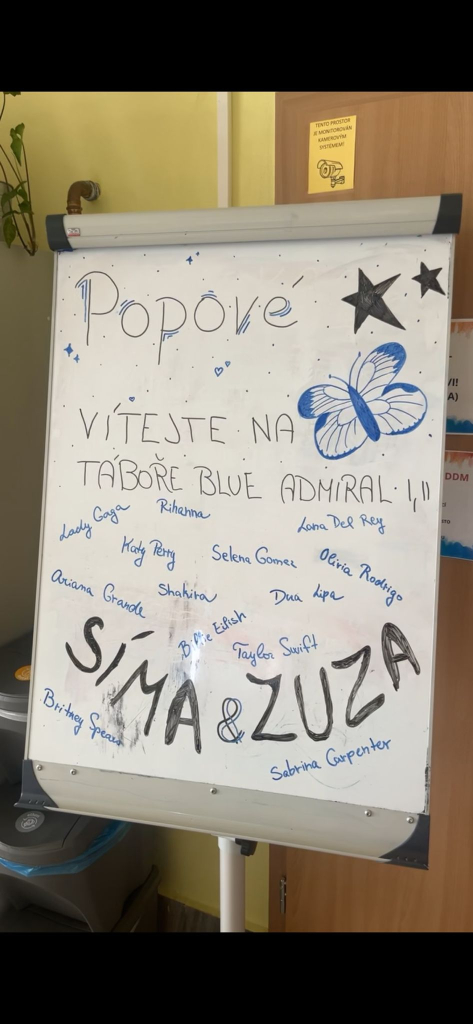 TENTO PROSTOR
JE MONITOROVÁN
KAMEROVÝM
SYSTÉMEM!
POPOVÉ
VÍTEJTE NA
TÁBOŘE BLUE ADMIRAL
Lady Gaga Rihanna Lana Del Rey
Katy Perry Selena Gomez Olivia Rodrigo
Ariana Grande Shakira Dua Lipa
Billie Eilish Taylor Swift
SÍMA & ZUZA
Britney Spears
Sabrina Carpenter
VI!
A)
DDM